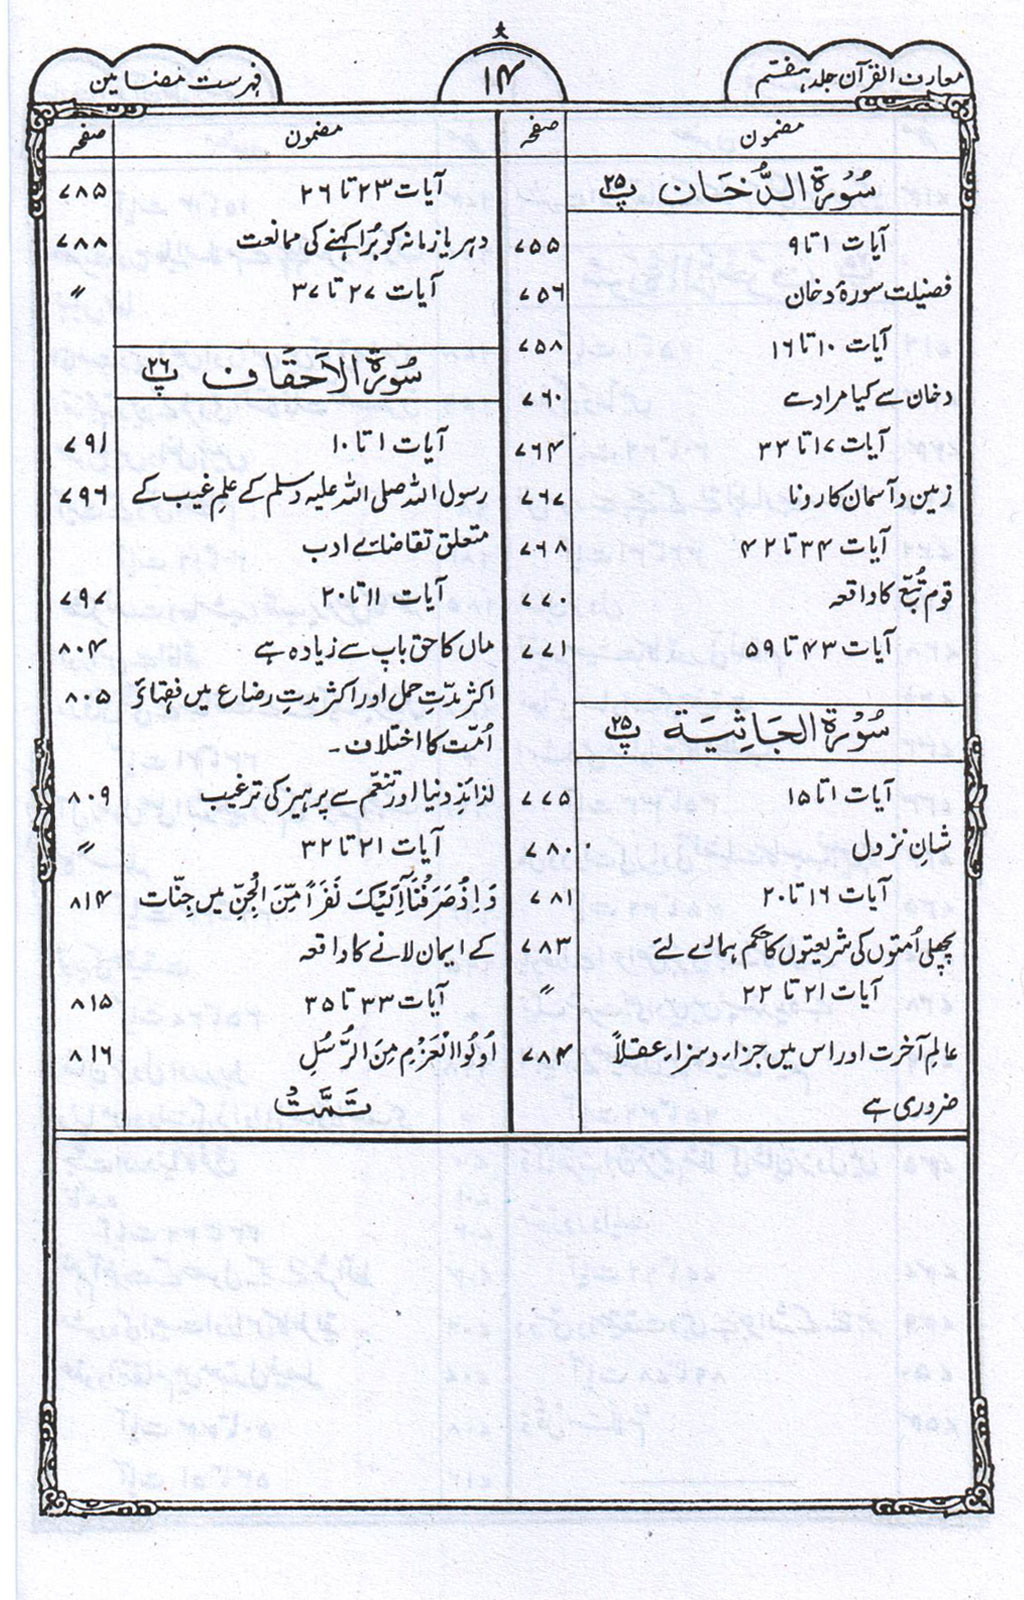 معارف القرآن جلد ہفتم
۱۴
فہرست مضامین
مضمون صفحہ
سُوْرَۃُ الدُّخَان پ۲۵
آیات ۱ تا ۹ ۷۵۵
فضیلت سورۂ دخان ۷۵۶
آیات ۱۰ تا ۱۶ ۷۵۸
دخان سے کیا مراد ہے ۷۶۰
آیات ۱۷ تا ۳۳ ۷۶۴
زمین و آسمان کا رونا ۷۶۷
آیات ۳۴ تا ۴۲ ۷۶۸
قوم تُبَّع کا واقعہ ۷۷۰
آیات ۴۳ تا ۵۹ ۷۷۱
سُوْرَۃُ الجَاثِیَۃ پ۲۵
آیات ۱ تا ۱۵ ۷۷۵
شانِ نزول ۷۸۰
آیات ۱۶ تا ۲۰ ۷۸۱
پچھلی اُمتوں کی شریعتوں کا حکم ہمارے لئے ۷۸۳
آیات ۲۱ تا ۲۲ 〃
عالمِ آخرت اور اس میں جزاء و سزاء عقلاً ۷۸۴
ضروری ہے
مضمون صفحہ
آیات ۲۳ تا ۲۶ ۷۸۵
دہر یا زمانہ کو بُرا کہنے کی ممانعت ۷۸۸
آیات ۲۷ تا ۳۷ 〃
سُوْرَۃُ الْاَحْقَاف پ۲۶
آیات ۱ تا ۱۰ ۷۹۱
رسول اللہ صلی اللہ علیہ وسلم کے علمِ غیب کے ۷۹۶
متعلق تقاضائے ادب
آیات ۱۱ تا ۲۰ ۷۹۷
ماں کا حق باپ سے زیادہ ہے ۸۰۴
اکثر مدّتِ حمل اور اکثر مدتِ رضاع میں فقہاءِ ۸۰۵
اُمّت کا اختلاف ۔
لذائذِ دنیا اور تنعّم سے پرہیز کی ترغیب ۸۰۹
آیات ۲۱ تا ۳۲ 〃
وَاِذْ صَرَفْنَآ اِلَیْکَ نَفَرًا مِّنَ الْجِنِّ میں جنّات ۸۱۴
کے ایمان لانے کا واقعہ
آیات ۳۳ تا ۳۵ ۸۱۵
اُولُوا الْعَزْمِ مِنَ الرُّسُلِ ۸۱۶
تَمَّتْ